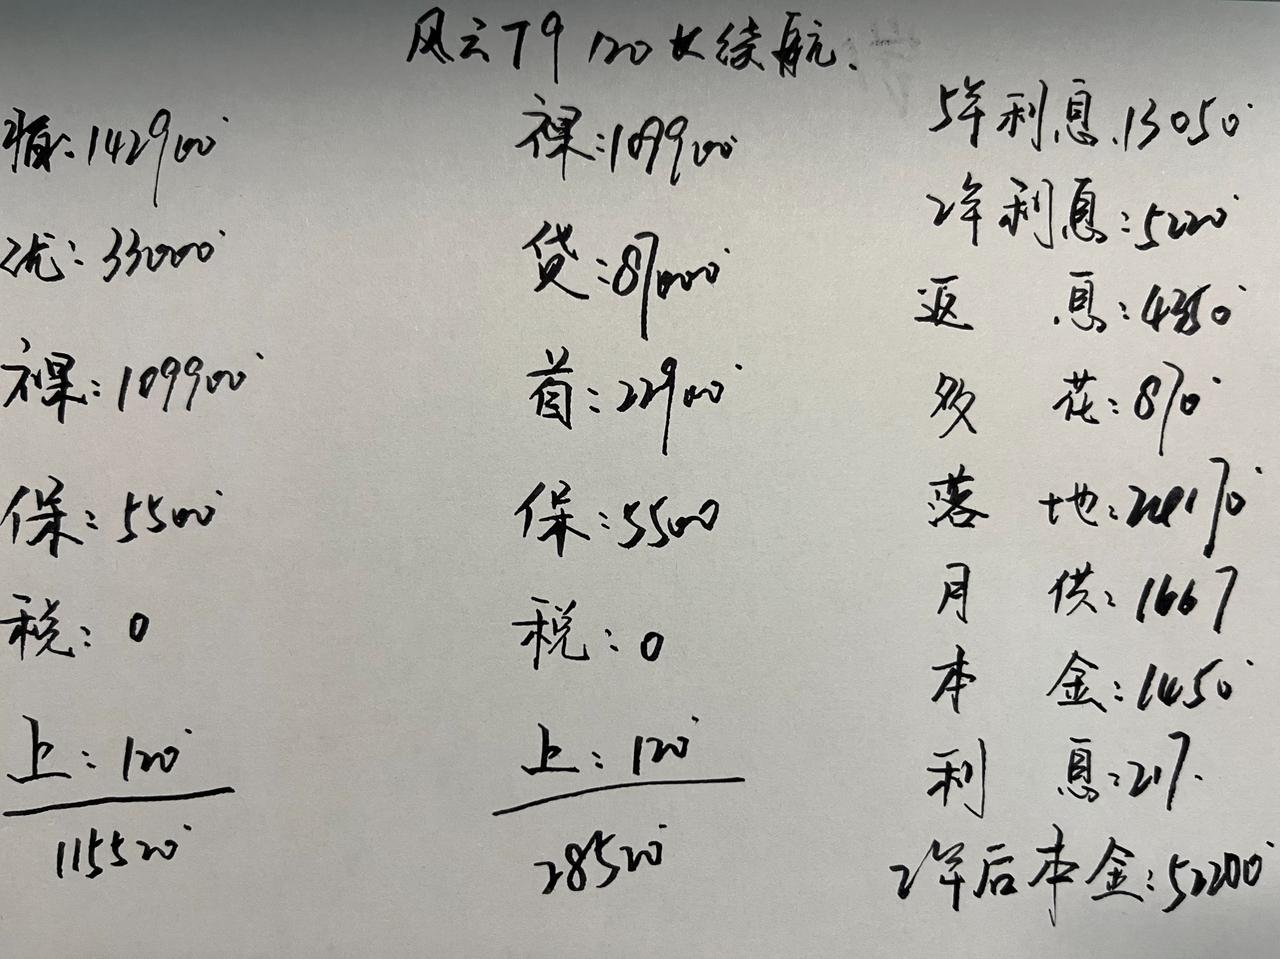 风云T9 120长续航.
指:142900
优:33000
裸:109900
保:5500
税:0
上:120
115520
裸:109900
贷:87000
首:22900
保:5500
税:0
上:120
28520
5年利息:13050
2年利息:5220
返息:4350
多花:870
落地:24170
月供:1667
本金:1450
利息:217.
2年后本金:52200